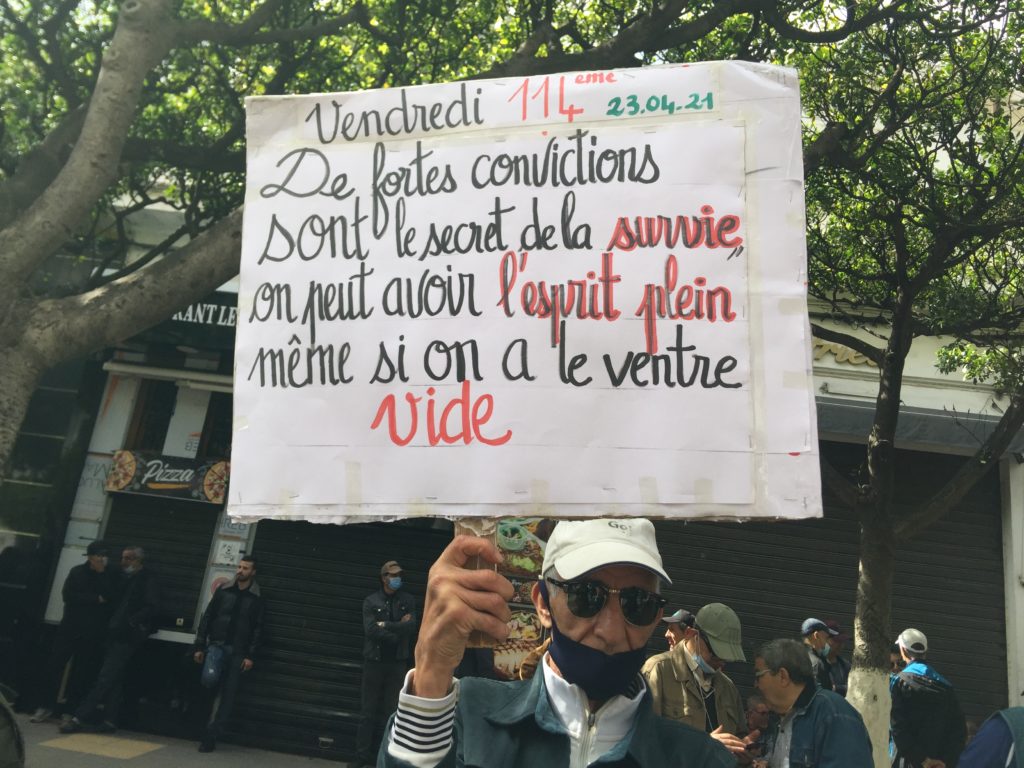 Vendredi 114 eme 23.04-21
De fortes convictions
sont le secret de la survie,
on peut avoir l'esprit plein
même si on a le ventre
vide
RANT LE
Pizza
Go!